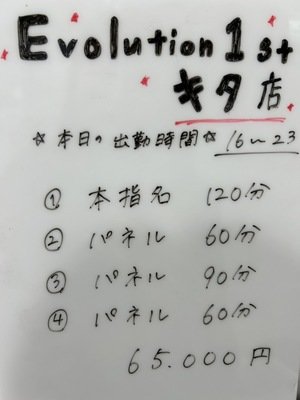 Evolution 1st
キタ店
☆本日の出勤時間☆ 16〜23
① 本指名 120分
② パネル 60分
③ パネル 90分
④ パネル 60分
65.000円